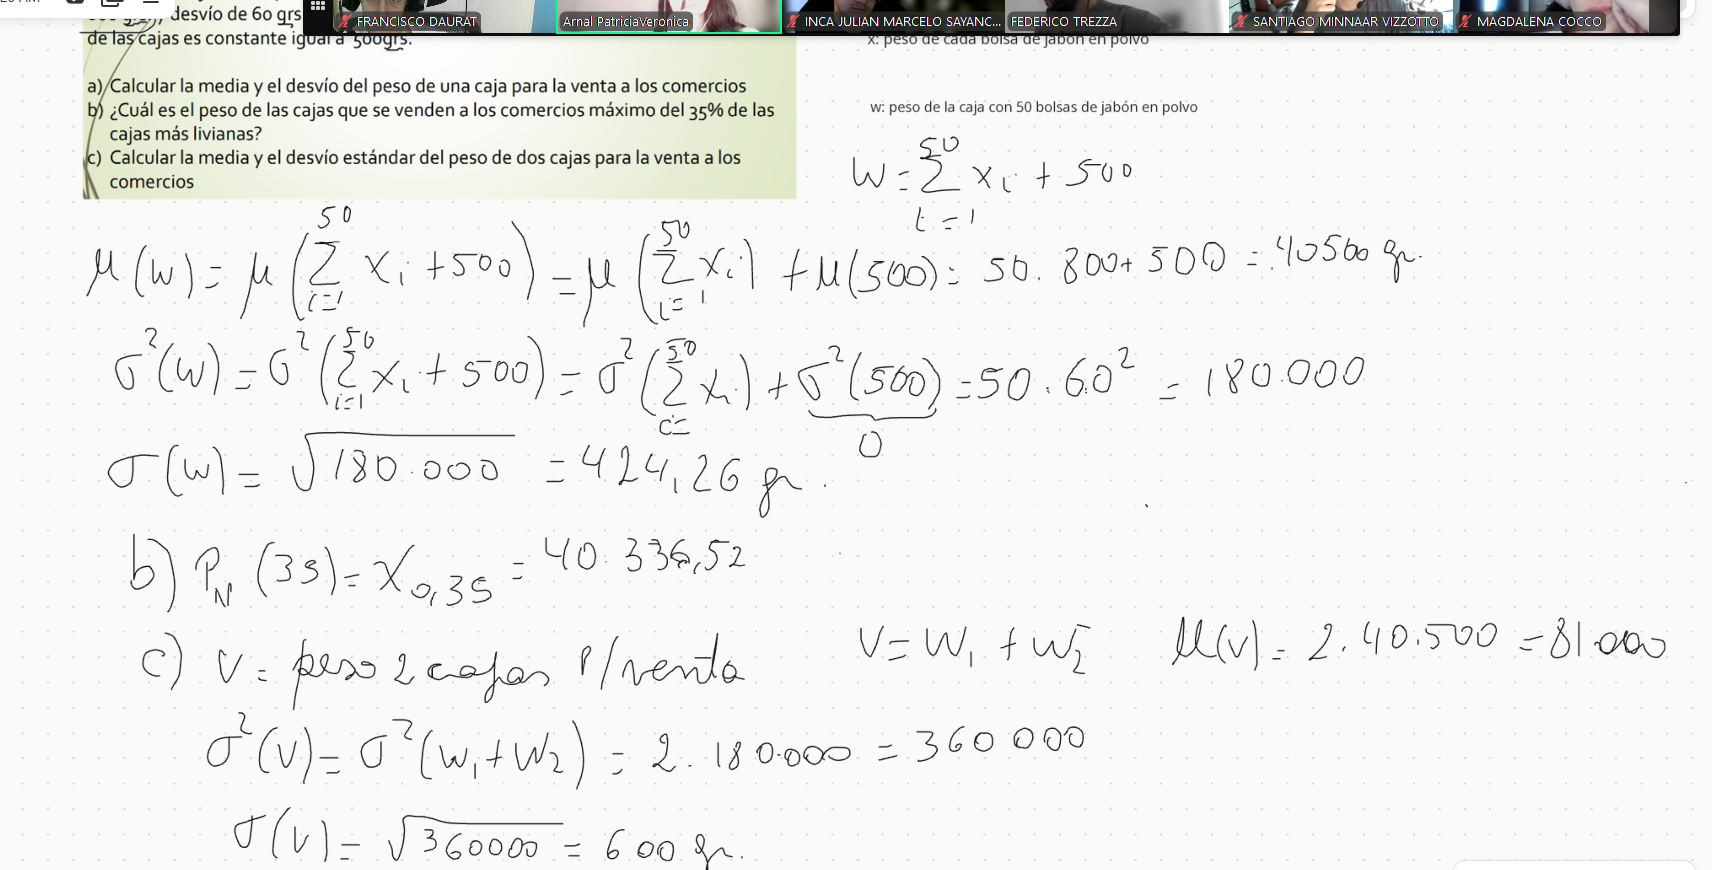 FRANCISCO DAURAT
Arnal PatriciaVeronica
INCA JULIAN MARCELO SAYANC...
FEDERICO TREZZA
SANTIAGO MINNAAR VIZZOTTO
MAGDALENA COCCO
desvío de 60 grs
de las cajas es constante igual a 500grs.
x: peso de cada bolsa de jabón en polvo
a) Calcular la media y el desvío del peso de una caja para la venta a los comercios
b) ¿Cuál es el peso de las cajas que se venden a los comercios máximo del 35% de las
cajas más livianas?
c) Calcular la media y el desvío estándar del peso de dos cajas para la venta a los
comercios
w: peso de la caja con 50 bolsas de jabón en polvo
W = ∑_{i=1}^{50} x_i + 500
μ(w) = μ(∑_{i=1}^{50} x_i + 500) = μ(∑_{i=1}^{50} x_i) + μ(500) = 50.800 + 500 = 40500 gr.
σ²(w) = σ²(∑_{i=1}^{50} x_i + 500) = σ²(∑_{i=}^{50} x_i) + σ²(500) = 50.60² = 180.000
0
σ(w) = √180.000 = 424,26 gr.
b) P_N (35) = X_{0,35} = 40.336,52
c) V = peso 2 cajas p/venta V = W₁ + W₂ μ(v) = 2.40.500 = 81000
σ²(V) = σ²(W₁ + W₂) = 2.180.000 = 360000
σ(V) = √360000 = 600 gr.